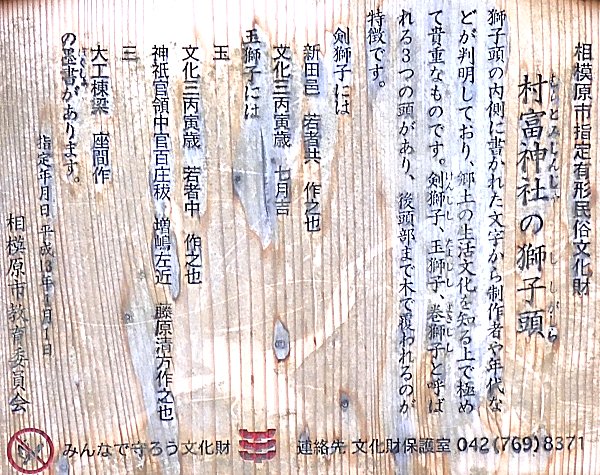 相模原市指定有形民俗文化財
村富神社の獅子頭
むらとみじんじゃ ししがしら
獅子頭の内側に書かれた文字から制作者や年代な
どが判明しており、郷土の生活文化を知る上で極め
て貴重なものです。剣獅子、玉獅子、巻獅子と呼ば
れる3つの頭があり、後頭部まで木で覆われるのが
特徴です。
剣獅子には
新田邑 若者共 作之也
文化三丙寅歳 七月吉
玉獅子には
玉
文化三丙寅歳 若者中 作之也
神祇官領中官百庄秡 増嶋左近 藤原清方作之也
三
大工棟梁 座間作
の墨書があります。
指定年月日 平成13年4月1日
相模原市教育委員会
みんなで守ろう文化財
連絡先 文化財保護室 042(769)8371